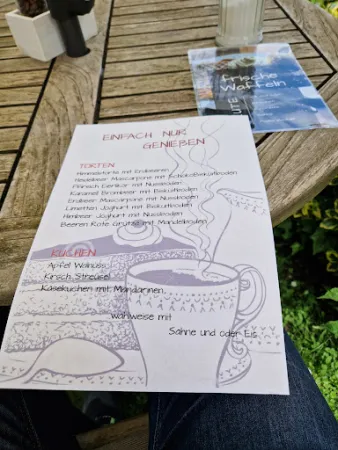 EINFACH NUR
GENIEẞEN
TORTEN
Himmelstorte mit Erdbeeren
Heidelbeer Mascarpone mit Schokobiskuitboden
Pfirsich Eierlikör mit Nussboden
Karamel Brombeer mit Biskuitboden
Erdbeer Mascarpone mit Nussboden
Limetten Joghurt mit Biskuitboden
Himbeer Joghurt mit Nussboden
Beeren Rote Grütze mit Mandelboden
KUCHEN
Apfel Walnuss
Kirsch Streusel
Käsekuchen mit Mandarinen
wahlweise mit
Sahne und oder Eis
frische
Waffeln